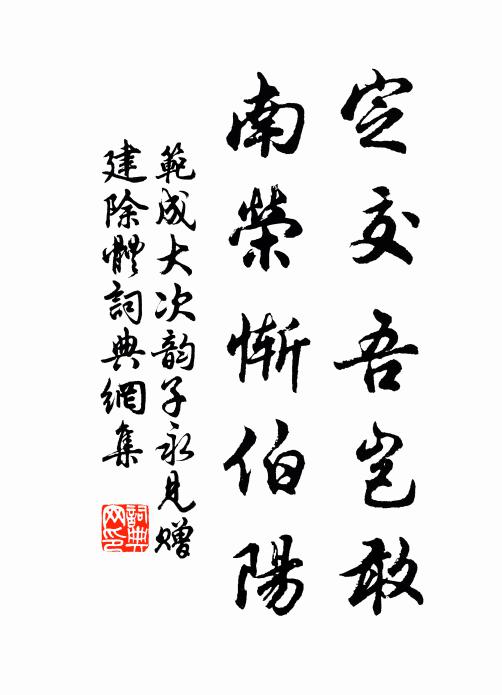 定交吾豈敢
南榮慚伯陽
範成大次韵子永見贈
建除體詞典網集
詞典
网印